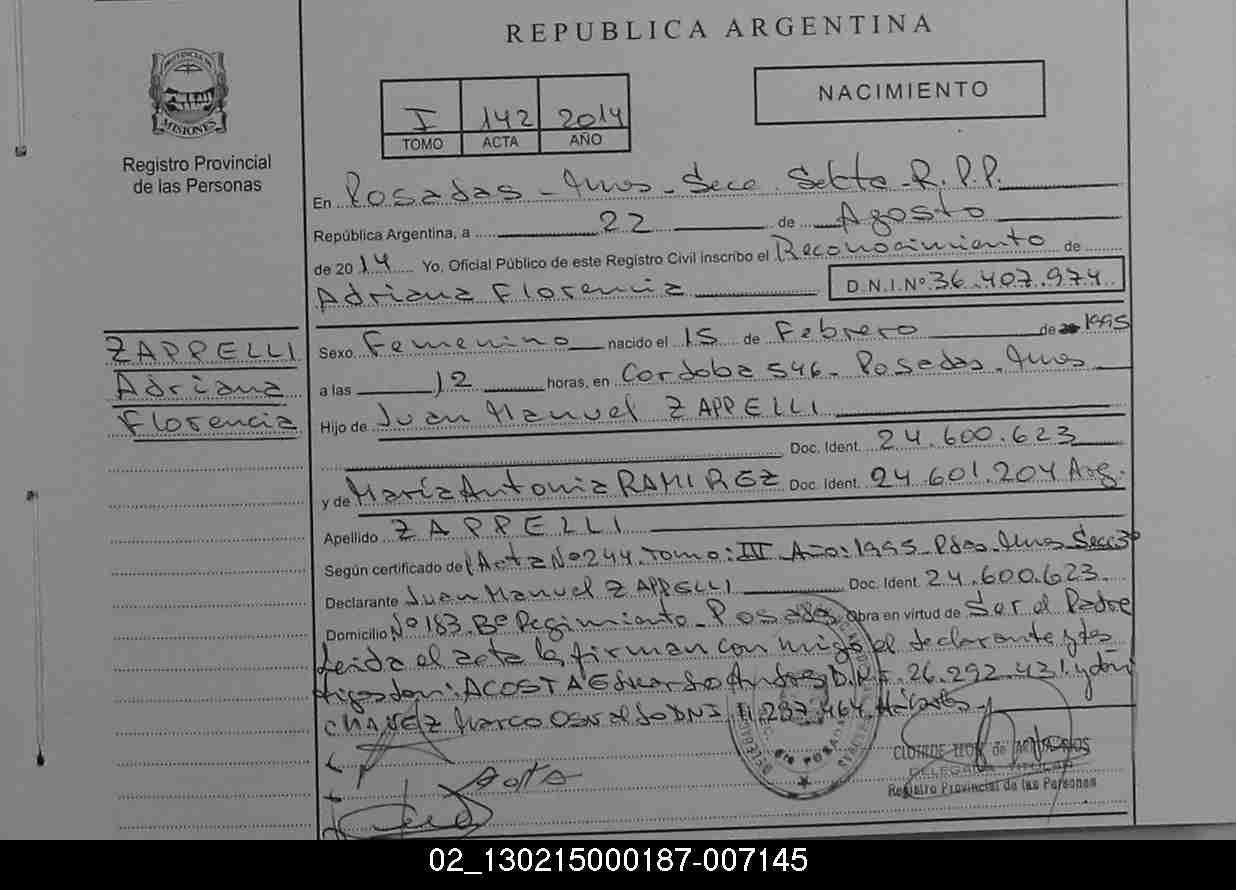 REPUBLICA ARGENTINA
PROVINCIA DE
MISIONES
Registro Provincial
de las Personas
I 142 2014
TOMO ACTA AÑO
NACIMIENTO
En Posadas - Mnes - Secc. Sexta - R.P.P.
República Argentina, a 22 de Agosto
de 2014 Yo, Oficial Público de este Registro Civil inscribo el Reconocimiento de
Adriana Florencia D.N.I.Nº 36.407.974
ZAPPELLI
Adriana
Florencia
Sexo Femenino nacido el 15 de Febrero de 1995
a las 12 horas, en Cordoba 546 - Posadas - Mnes
Hijo de Juan Manuel ZAPPELLI
Doc. Ident. 24.600.623
y de María Antonia RAMIREZ Doc. Ident. 24.601.204 Arg.
Apellido ZAPPELLI
Según certificado del Acta Nº 244 Tomo: III Año: 1995 Pdas. Mnes Secc 3º
Declarante Juan Manuel ZAPPELLI Doc. Ident. 24.600.623
Domicilio Nº 183 Bº Regimiento - Posadas Obra en virtud de Ser el Padre
leida el acta la firman conmigo el declarante y tes
tigos don: ACOSTA Eduardo Andres D.N.I. 26.292.431 y don
CHAVEZ Marco Osvaldo DNI 11.287.464 Hábiles
Acosta
CLOTILDE de
DELEGADA
Registro Provincial de las Personas
02_130215000187-007145